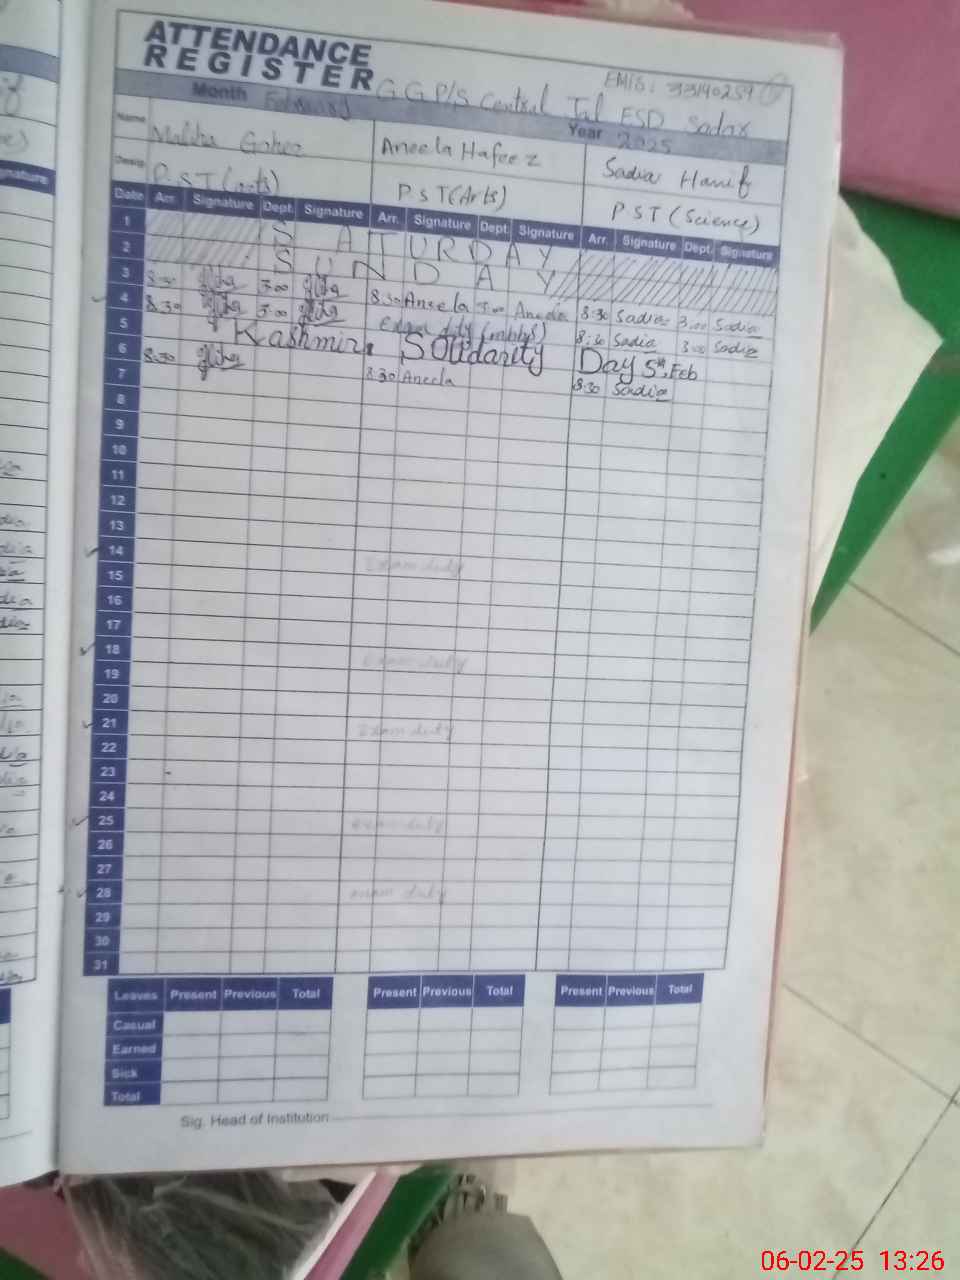 ATTENDANCE
REGISTER
EMIS: 33140259
Month February G.G.P/S Central Jail FSD Sadar
Year 2025
Name Maliha Goher Aneela Hafeez Sadia Hanif
Desig. P.S.T (arts) P.S.T (Arts) P S T (Science)
Date Arr. Signature Dept. Signature Arr. Signature Dept. Signature Arr. Signature Dept. Signature
1 SATURDAY
2 SUNDAY
3 8:30 3:00 8:30 Aneela 3:00 Aneela 8:30 Sadia 3:00 Sadia
4 8:30 3:00 Exam duty 8:30 Sadia 3:00 Sadia
5 Kashmir Solidarity Day 5th Feb
6 8:30 8:30 Aneela 8:30 Sadia
7
8
9
10
11
12
13
14 Exam duty
15
16
17
18 Exam duty
19
20
21 Exam duty
22
23
24
25 exam duty
26
27
28 exam duty
29
30
31
Leaves Present Previous Total Present Previous Total Present Previous Total
Casual
Earned
Sick
Total
Sig. Head of Institution
06-02-25 13:26